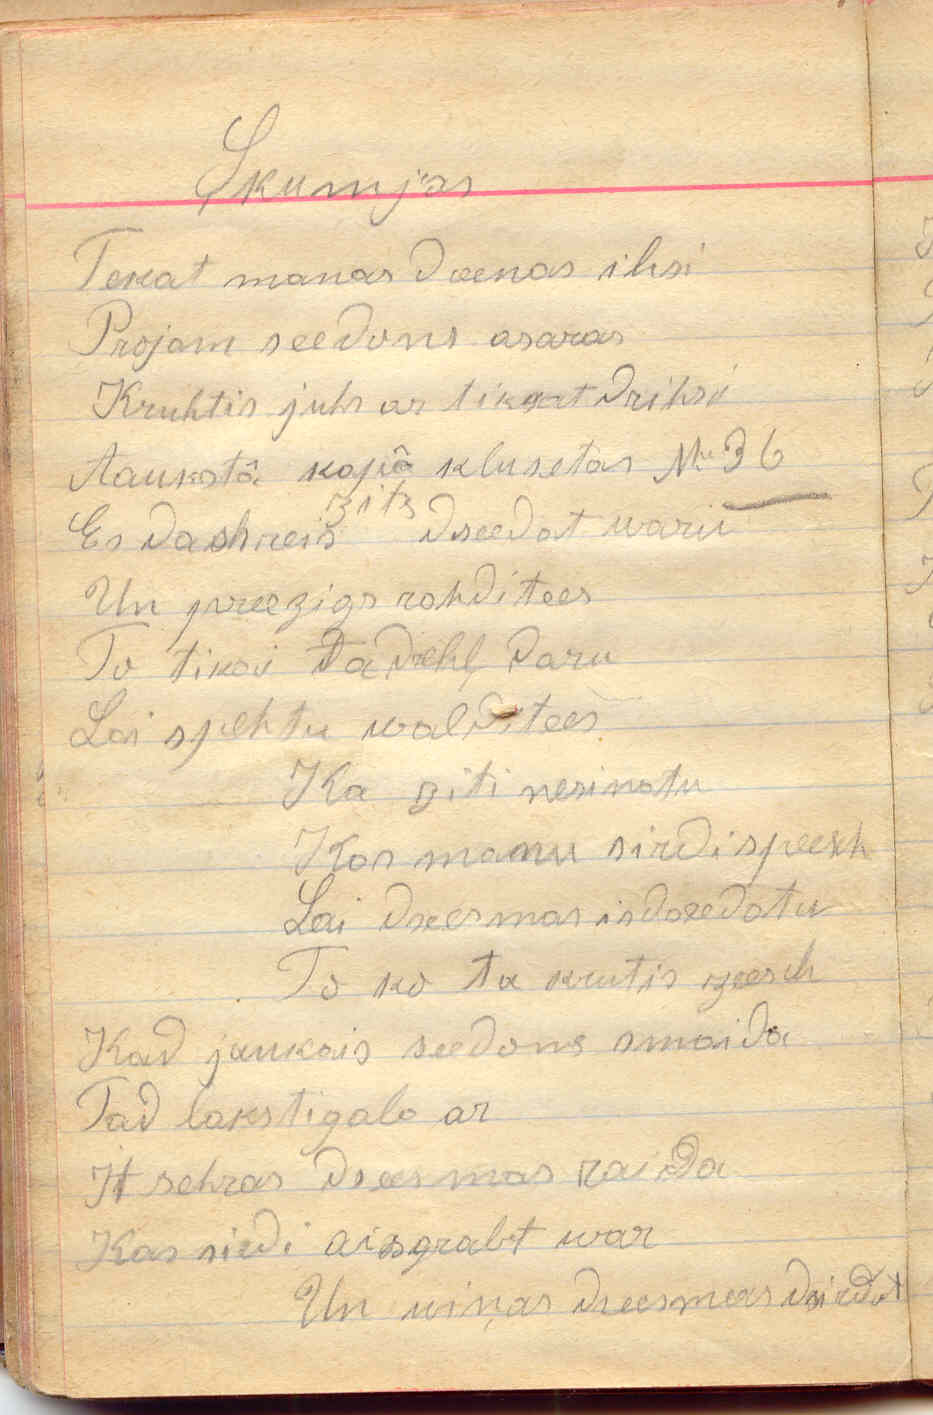 Skumjas
Tekat manas deenas ihsi
Projam seedons asaras
Kruhtis juhs ar tikat drihsi
Aaukstâ kapâ klusetas № 36
zits
Es dashreis dseedat waru
Un preezigs rahditees
To tikai ta dehļ daru
Lai spehtu walditees
Ka ziti nesinatu
Kas manu sirdi speesch
Lai dseesmas isdseedatu
To ko ta krutis zeesch
Kad jaukais seedons smaida
Tad lakstigala ar
It sehras dseesmas raida
Kas sirdi aisgrabt war
Un wiņas dseesmas dsirdot